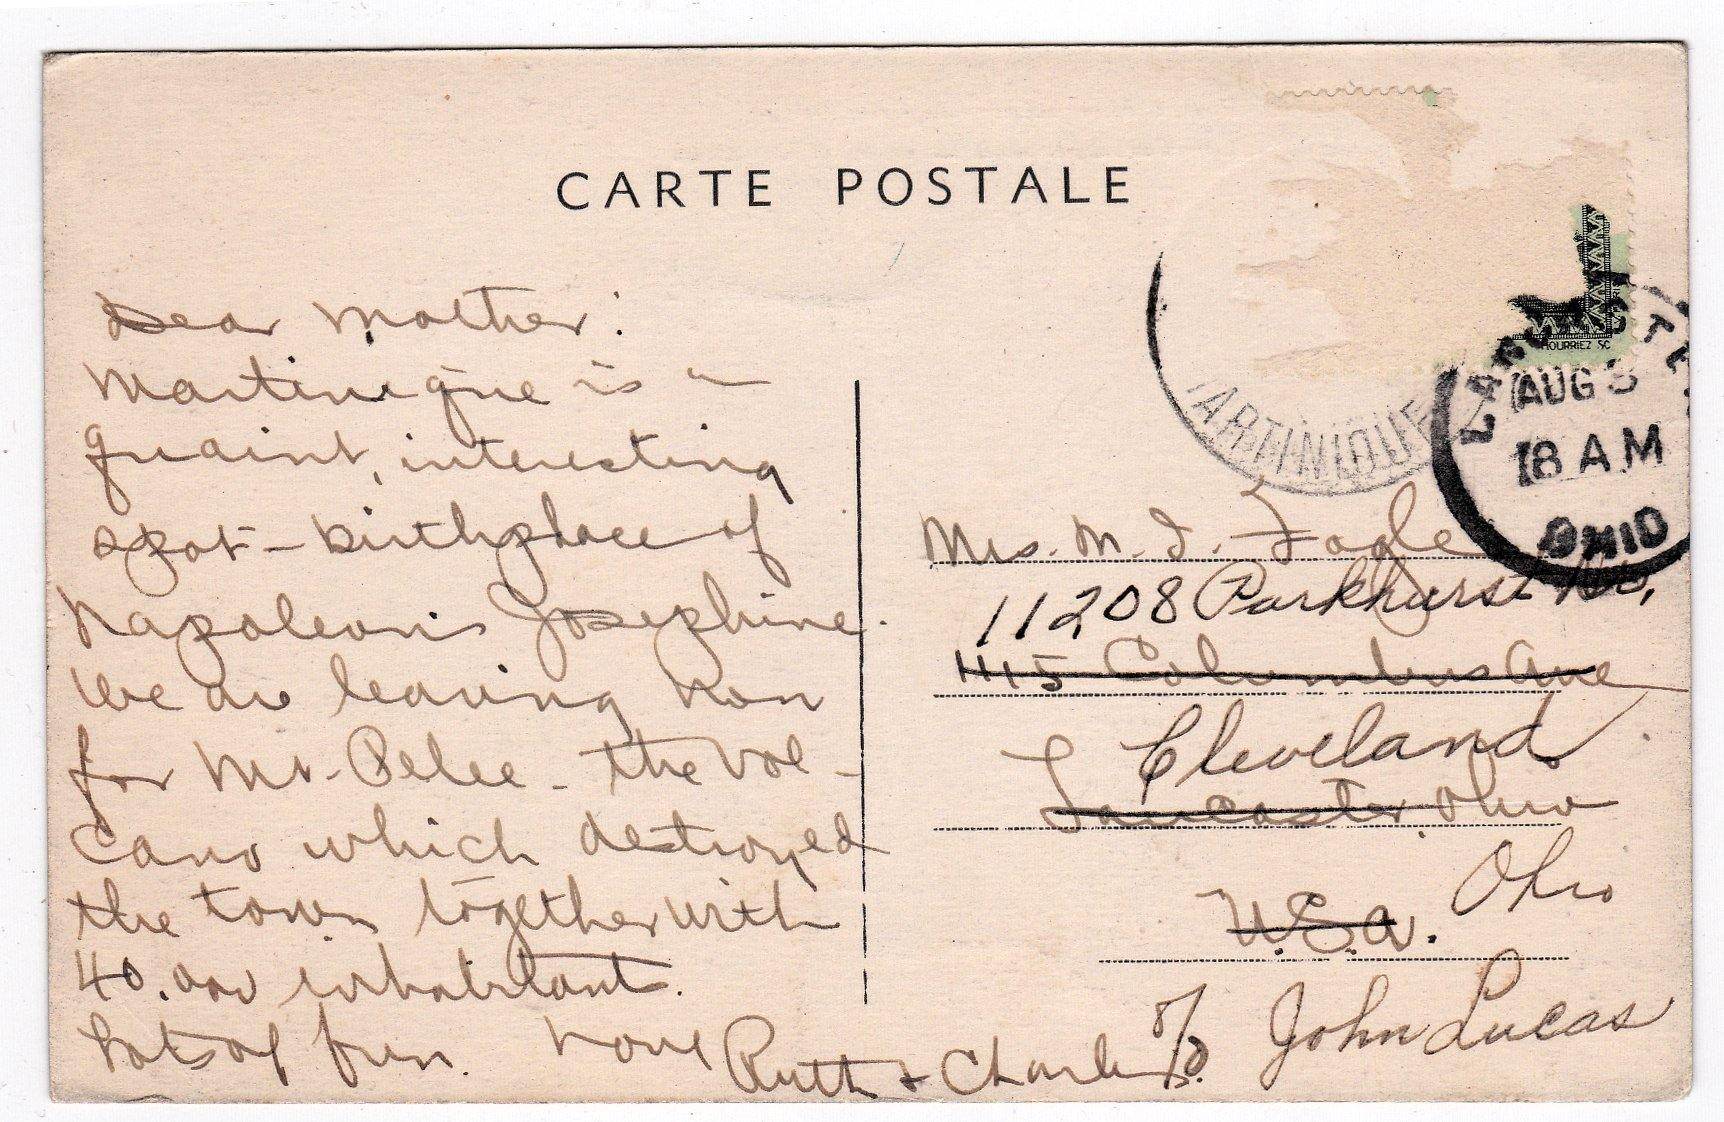 CARTE POSTALE
Dear Mother:
Martinique is a
quaint, interesting
spot - birthplace of
Napoleon's Josephine.
We are leaving now
for Mt. Pelee - the vol-
cano which destroyed
the town together with
40,000 inhabitants.
Lots of fun. Love
Ruth & Charles.
MARTINIQUE
HOURRIEZ SC
LANCASTER
AUG 3
8 AM
OHIO
Mrs. M. I. Fogle
11208 Parkhurst
415 Columbus Ave
Cleveland
Lancaster, Ohio
Ohio
U.S.A.
c/o John Lucas